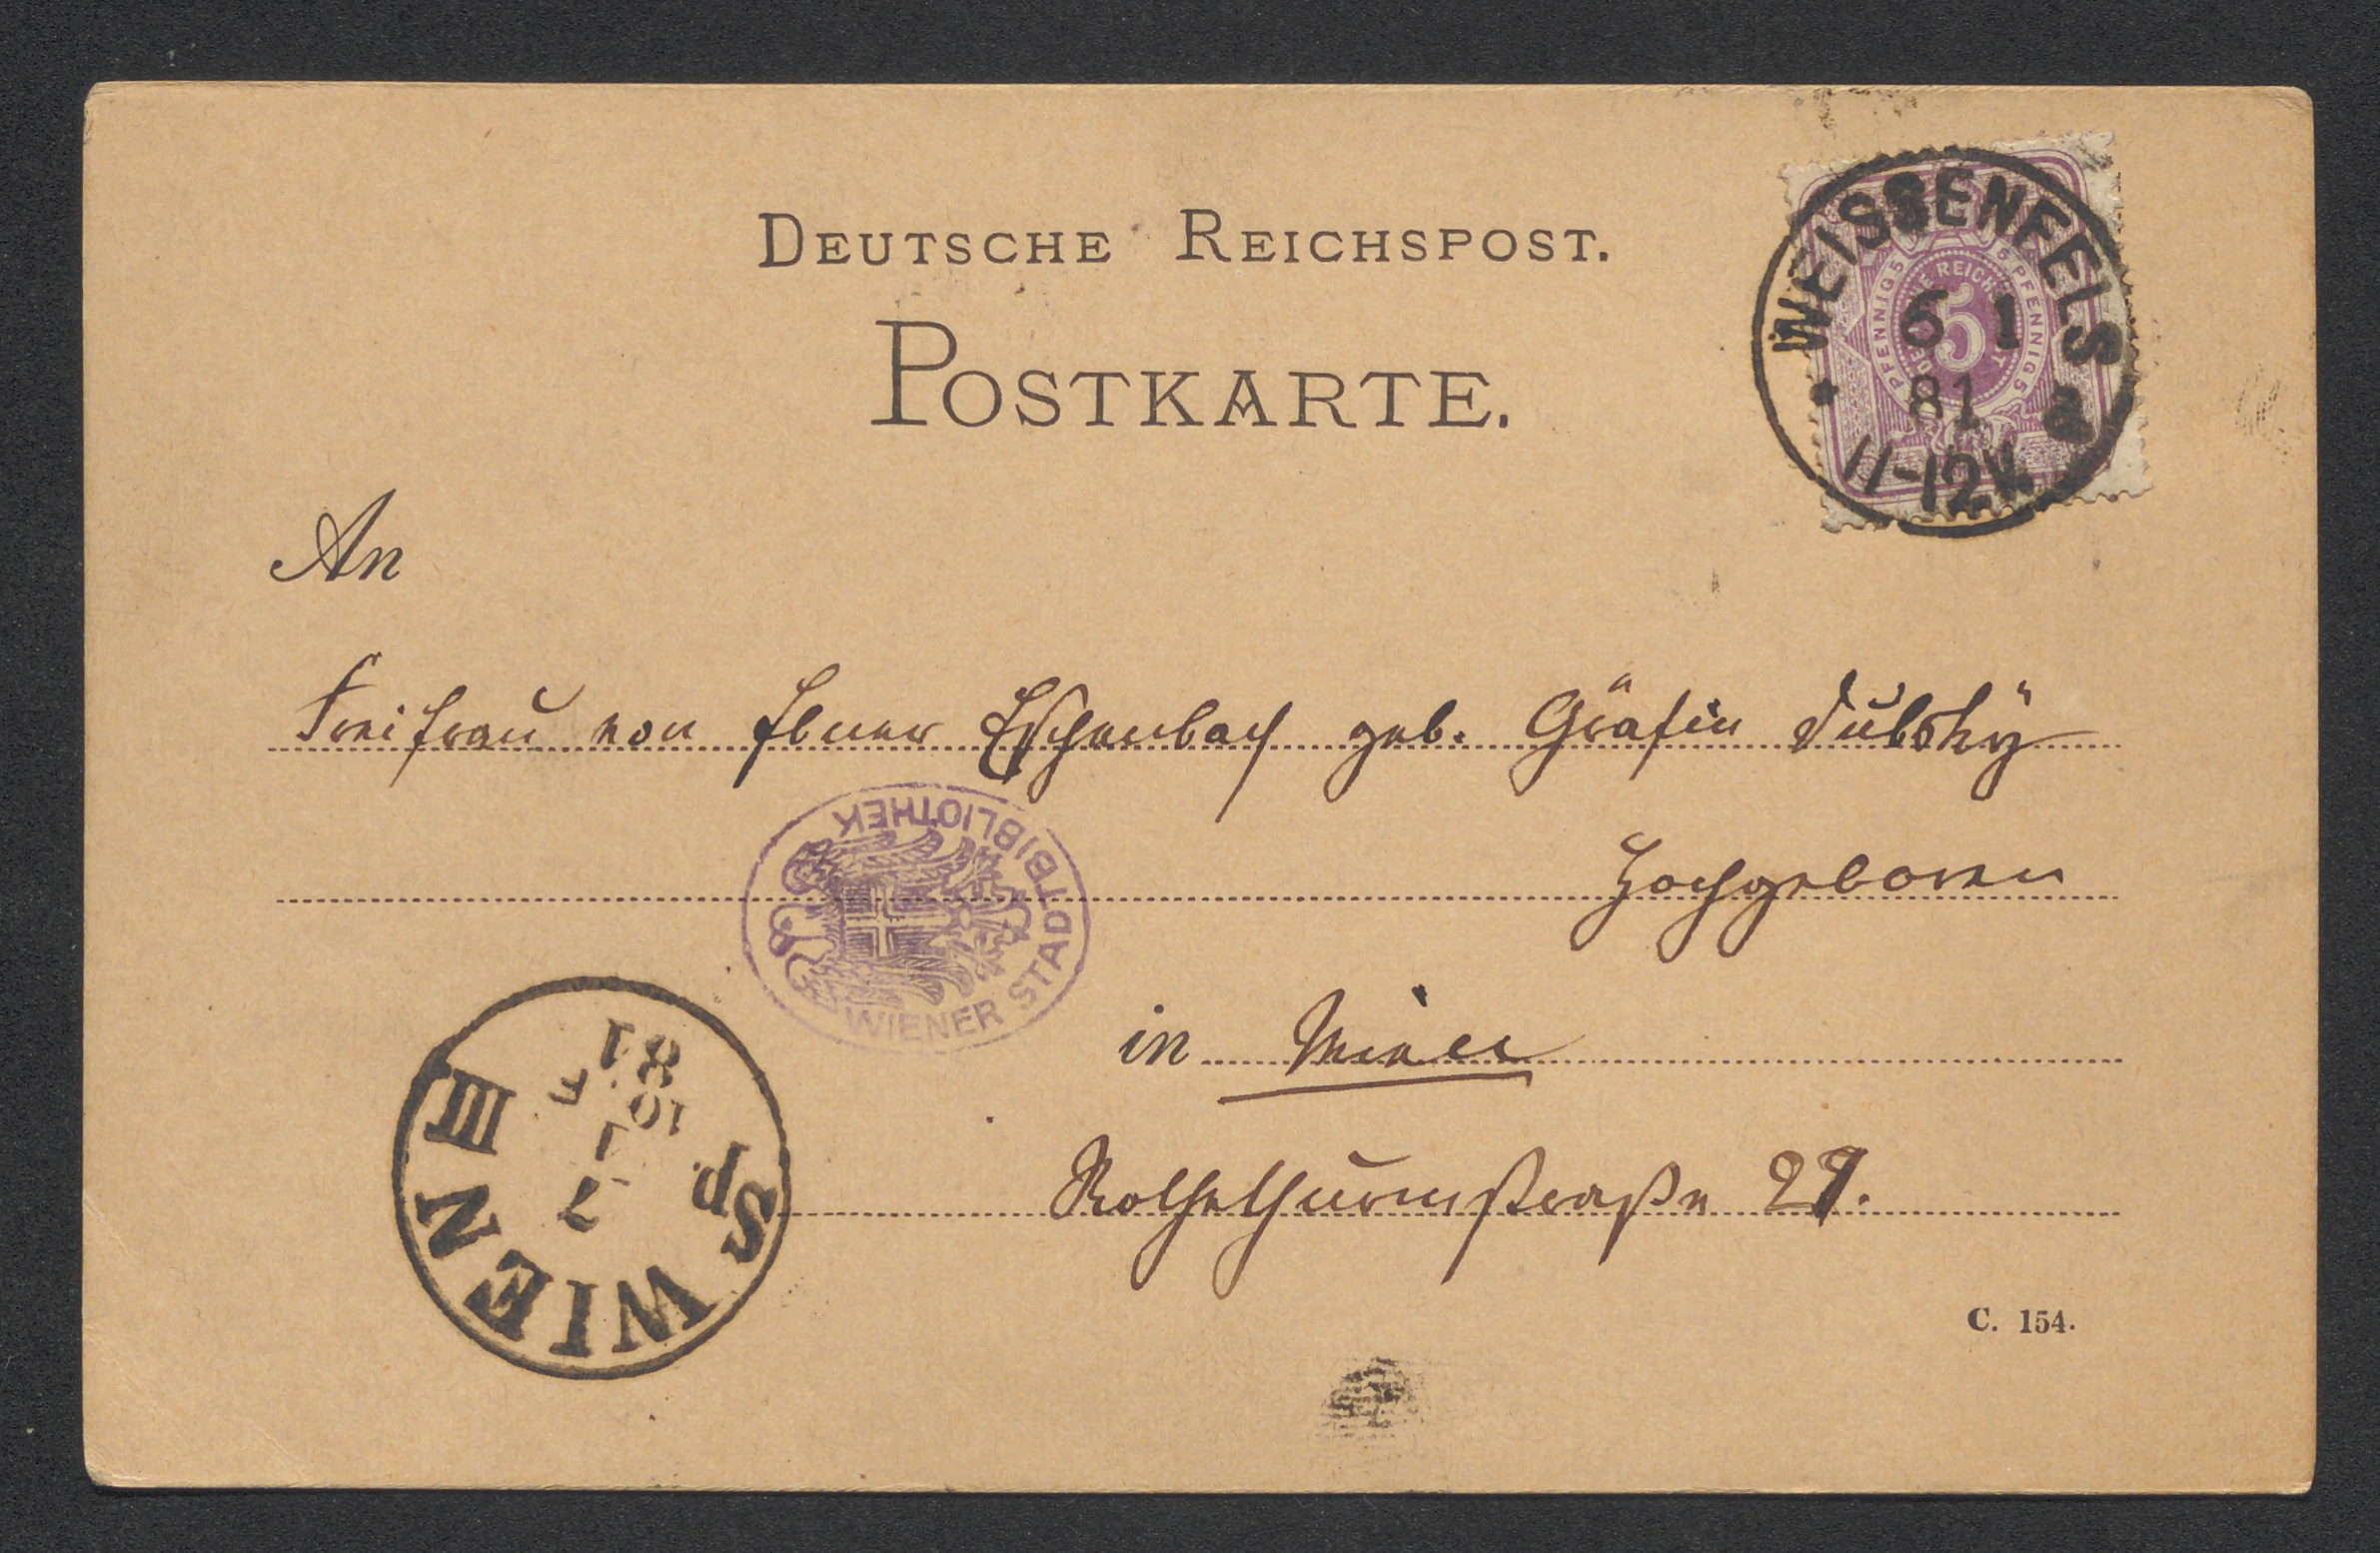 DEUTSCHE REICHSPOST.
POSTKARTE.
WEISSENFELS
6 1
81
11-12V.
PFENNIG 5
REICHS
5 PFENNIG 5
5
An
Freifrau von Ebner Eschenbach geb. Gräfin Dubský
Hochgeboren
WIENER STADTBIBLIOTHEK
in Wien
Rothethurmstraße 27.
WIEN III
7
1
81
C. 154.